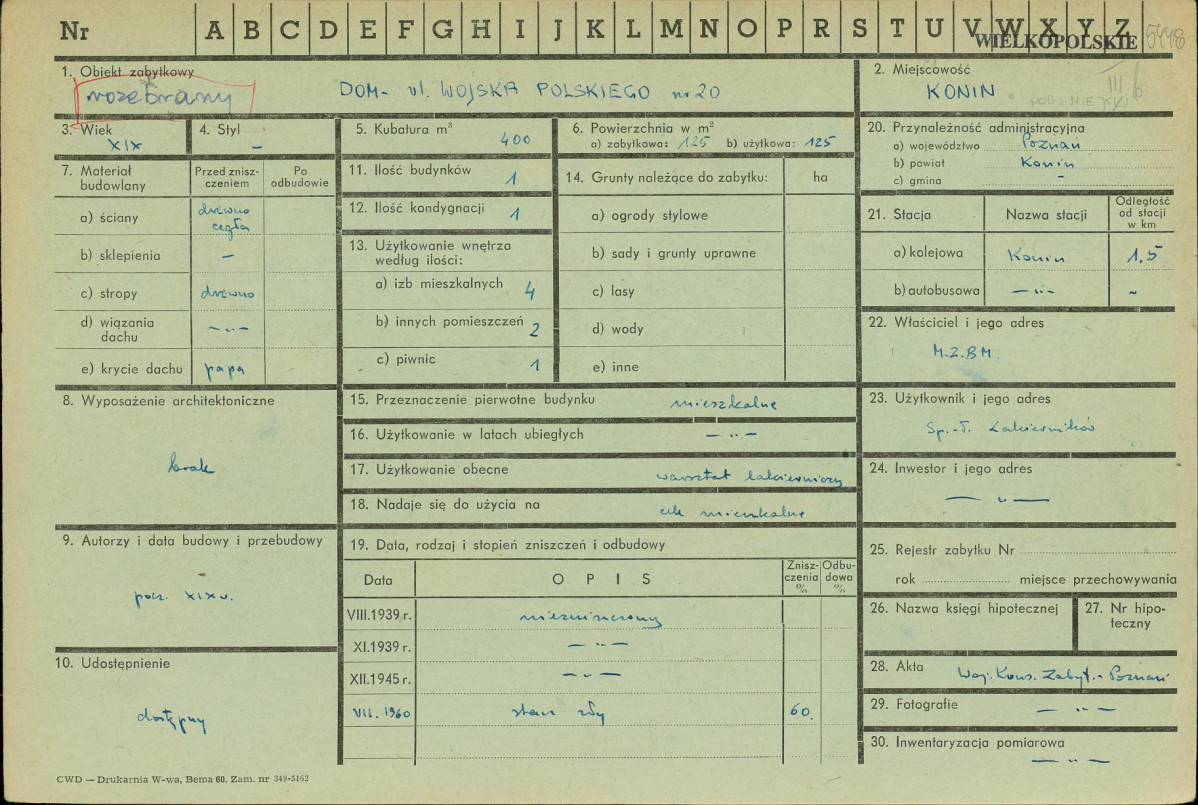 Nr A B C D E F G H I J K L M N O P R S T U V W X Y Z
WIELKOPOLSKIE 5448
1. Obiekt zabytkowy
rozebrany
DOM - ul. WOJSKA POLSKIEGO nr 20
2. Miejscowość
KONIN
POW. MIEJSKI
III
3. Wiek
XIX
4. Styl
–
5. Kubatura m³
400
6. Powierzchnia w m²
a) zabytkowa: 125 b) użytkowa: 125
7. Materiał budowlany
Przed zniszczeniem
Po odbudowie
a) ściany drewno cegła
b) sklepienia –
c) stropy drewno
d) wiązania dachu –„–
e) krycie dachu papa
8. Wyposażenie architektoniczne
brak
9. Autorzy i data budowy i przebudowy
pocz. XIX w.
10. Udostępnienie
dostępny
11. Ilość budynków 1
12. Ilość kondygnacji 1
13. Użytkowanie wnętrza
według ilości:
a) izb mieszkalnych 4
b) innych pomieszczeń 2
c) piwnic 1
14. Grunty należące do zabytku: ha
a) ogrody stylowe
b) sady i grunty uprawne
c) lasy
d) wody
e) inne
15. Przeznaczenie pierwotne budynku mieszkalne
16. Użytkowanie w latach ubiegłych –„–
17. Użytkowanie obecne warsztat lakierniczy
18. Nadaje się do użycia na cele mieszkalne
19. Data, rodzaj i stopień zniszczeń i odbudowy
Data OPIS Zniszczenia % Odbudowa %
VIII.1939 r. niezniszczony
XI.1939 r. –„–
XII.1945 r. –„–
VII. 1960 stan zły 60.
20. Przynależność administracyjna
a) województwo Poznań
b) powiat Konin
c) gmina –
21. Stacja Nazwa stacji Odległość od stacji w km
a) kolejowa Konin 1.5
b) autobusowa –„– –
22. Właściciel i jego adres
M.Z.B.M.
23. Użytkownik i jego adres
Sp.-ł. Lakierników
24. Inwestor i jego adres
–„–
25. Rejestr zabytku Nr
rok miejsce przechowywania
26. Nazwa księgi hipotecznej
27. Nr hipoteczny
28. Akta Woj. Kons. Zabyt. - Poznań
29. Fotografie –„–
30. Inwentaryzacja pomiarowa
–„–
CWD — Drukarnia W-wa, Bema 60. Zam. nr 349-5162